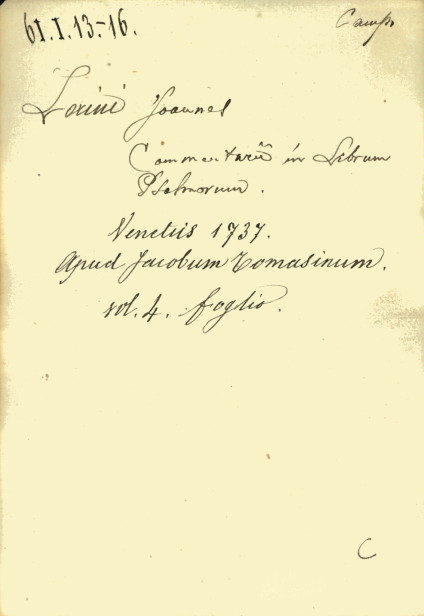 61.I.13.-16.
Lorini Joannes
Commentariū in Librum
Psalmorum.
Venetiis 1737.
Apud Jacobum Tomasinum.
vol. 4. foglio.
C